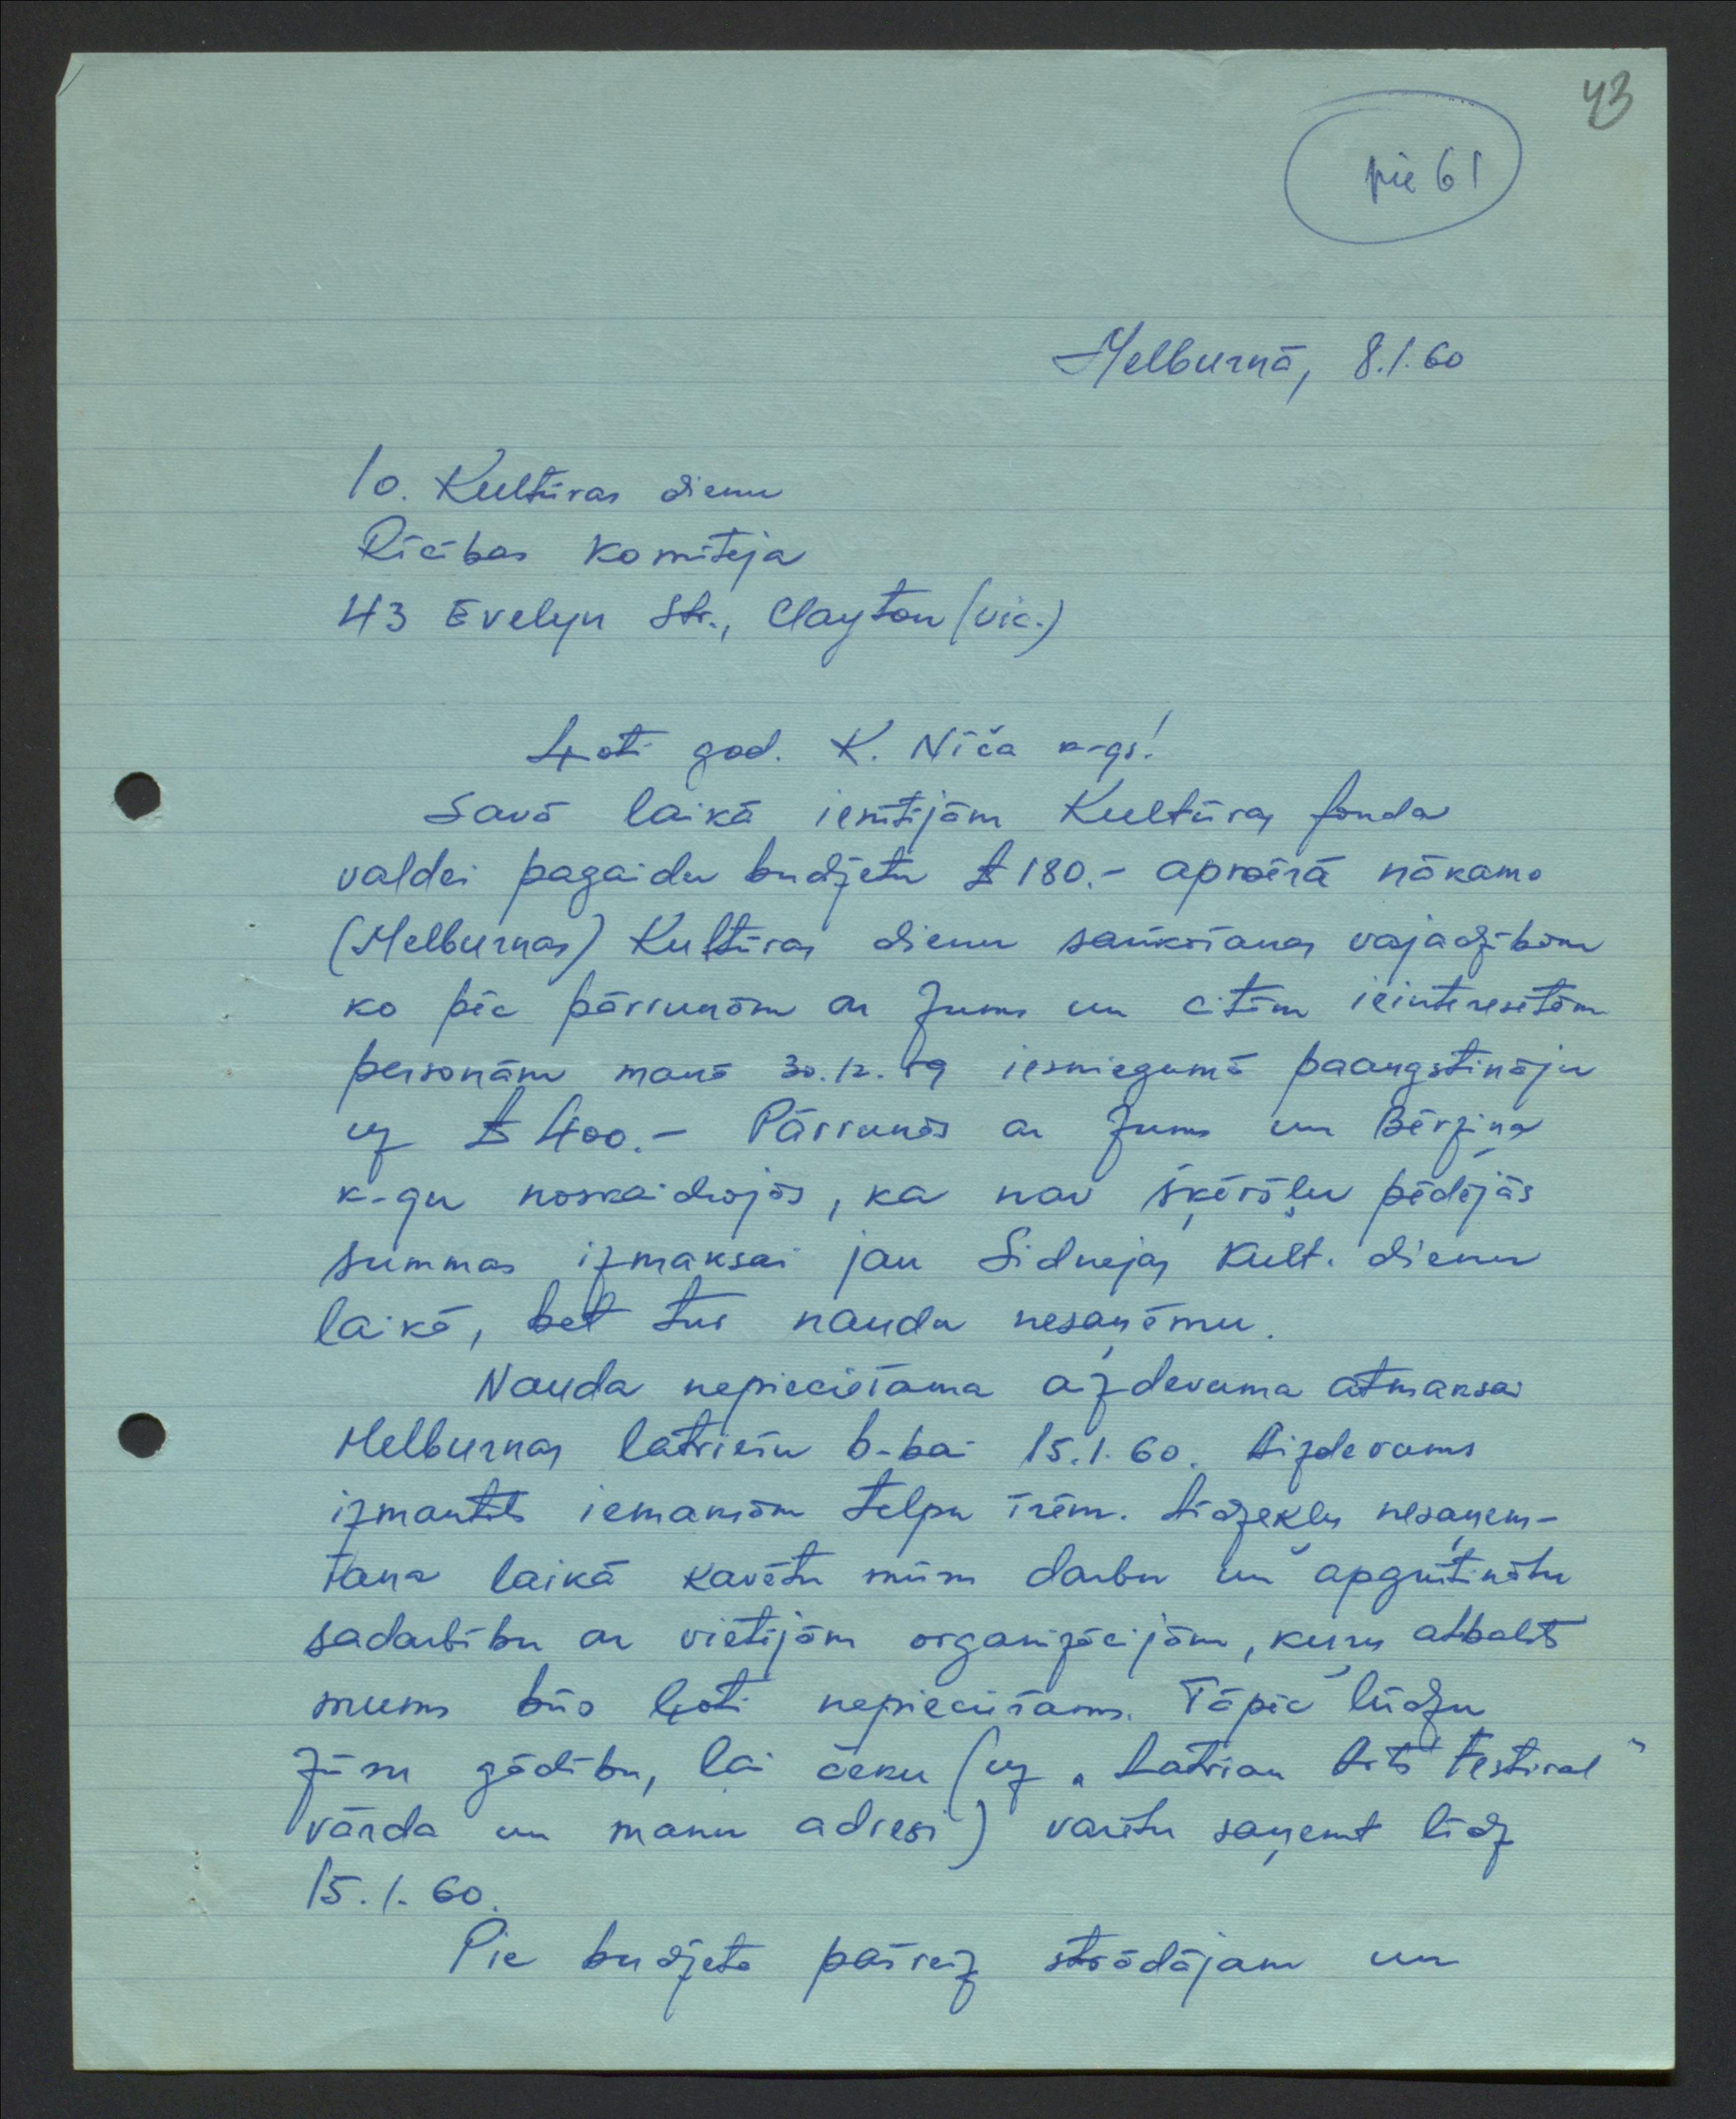 43
pie 61
Melburnā, 8.1.60
10. Kultūras dienu
Rīcības Komiteja
43 Evelyn Str., Clayton (Vic.)
Ļoti god. K. Niča k-gs!
Savā laikā iesūtījām Kultūras fonda
valdei pagaidu budžetu £ 180.- apmērā nākamo
(Melburnas) Kultūras dienu sarīkošanas vajadzībām
ko pēc pārrunām ar Jums un citām ieinteresētām
personām manā 30.12.59 iesniegumā paaugstināju
uz £ 400.- Pārrunās ar Jums un Bērziņa
k-gu noskaidrojās, ka nav šķēršļu pēdējās
summas izmaksai jau Sidnejas Kult. dienu
laikā, bet tur naudu nesaņēmu.
Nauda nepieciešama aizdevuma atmaksai
Melburnas latviešu b-bai 15.1.60. Aizdevums
izmantots iemaksām telpu īrēm. Līdzekļu nesaņem-
šana laikā kavētu mūsu darbu un apgrūtinātu
sadarbību ar vietējām organizācijām, kuŗu atbalsts
mums būs ļoti nepieciešams. Tāpēc lūdzu
Jūsu gādību, lai čeku (uz „Latvian Arts Festival"
vārda un manu adresi) varētu saņemt līdz
15.1.60.
Pie budžeta pašreiz strādājam un